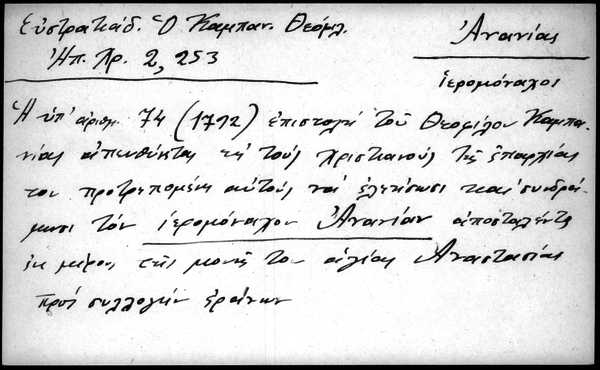 Εὐστρατιάδ. Ὁ Καμπαν. Θεόφιλ.
Ἠπ. Χρ. 2, 253
Ἀνανίας
ἱερομόναχος
Ἡ ὑπ' ἀριθμ. 74 (1792) ἐπιστολὴ τοῦ Θεοφίλου Καμπα-
νίας ἀπευθύνεται εἰς τοὺς Χριστιανοὺς τῆς ἐπαρχίας
του προτρεπομένη αὐτοὺς νὰ ἐλεήσωσι καὶ συνδρά-
μωσι τὸν ἱερομόναχον Ἀνανίαν ἀποσταλέντα
ἐκ μέρους τῆς μονῆς τῆς ἁγίας Ἀναστασίας
πρὸς συλλογὴν ἐράνων